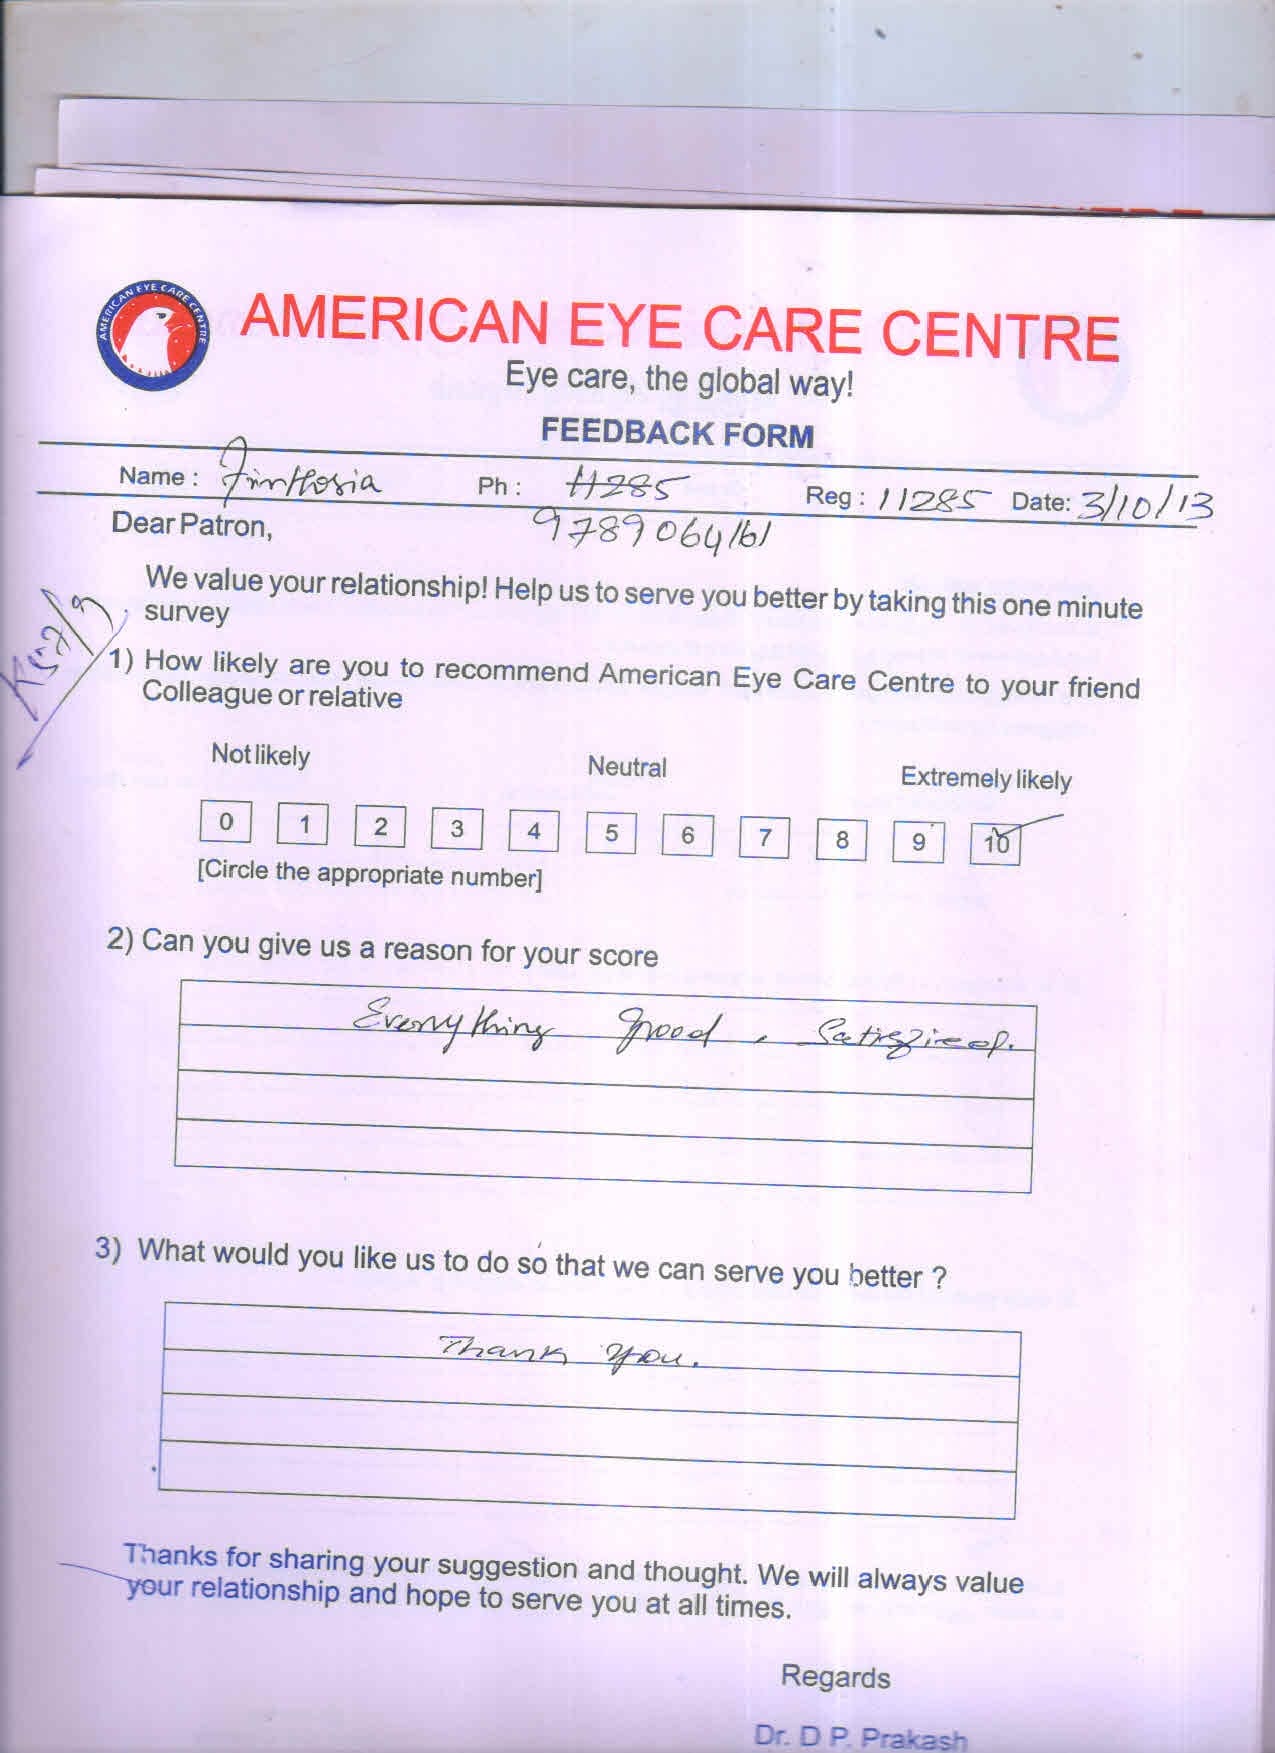 AMERICAN EYE CARE CENTRE
AMERICAN EYE CARE CENTRE
Eye care, the global way!
FEEDBACK FORM
Name : Ph : 11285 Reg : 11285 Date: 3/10/13
9789064161
Dear Patron,
We value your relationship! Help us to serve you better by taking this one minute
survey
1) How likely are you to recommend American Eye Care Centre to your friend
Colleague or relative
Not likely Neutral Extremely likely
0 1 2 3 4 5 6 7 8 9 10
[Circle the appropriate number]
2) Can you give us a reason for your score
Everything good, Satisfied.
3) What would you like us to do so that we can serve you better ?
Thank you.
Thanks for sharing your suggestion and thought. We will always value
your relationship and hope to serve you at all times.
Regards
Dr. D P. Prakash